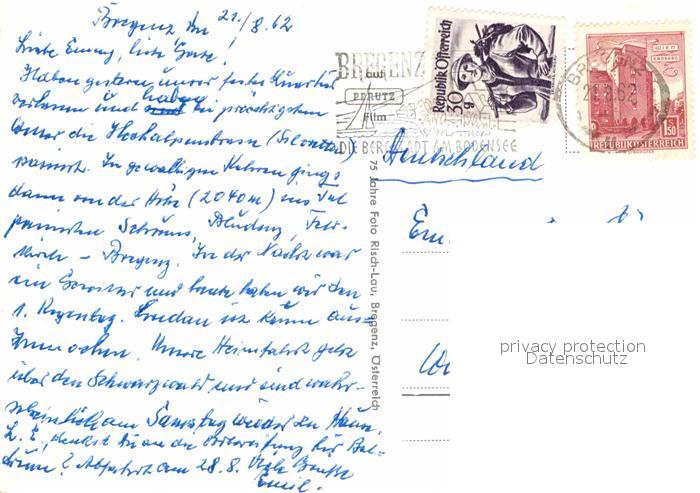 Bregenz den 21./8.62
Liebe Emmy, liebe Grete!
Haben gestern unser festes Quartier
verlassen und haben bei prächtigstem
die Hochalpenstrasse (Silvretta)
passiert. In gewaltigen Kehren gings
dann von der Höhe (2040 m) ins Tal
passierten Schruns, Bludenz, Feld-
kirch – Bregenz. In der Nacht war
ein Gewitter und heute haben wir den
1. Regentag. Lindau ist kaum aus-
zumachen. Unsere Heimfahrt geht
über den Schwarzwald und sind wahr-
scheinlich am Samstag wieder zu Haus.
L. E., denkst du an die Vorbereitung für
? Abfahrt am 28.8. Viele Grüsse
Emil.
75 Jahre Foto Risch-Lau, Bregenz, Österreich
BREGENZ
auf
PERUTZ
film
DIE BERGSTADT AM BODENSEE
Republik Österreich
30 g
WIEN
ERDBERG
1.50
REPUBLIK ÖSTERREICH
21.8.62
Deutschland
Em
privacy protection
Datenschutz